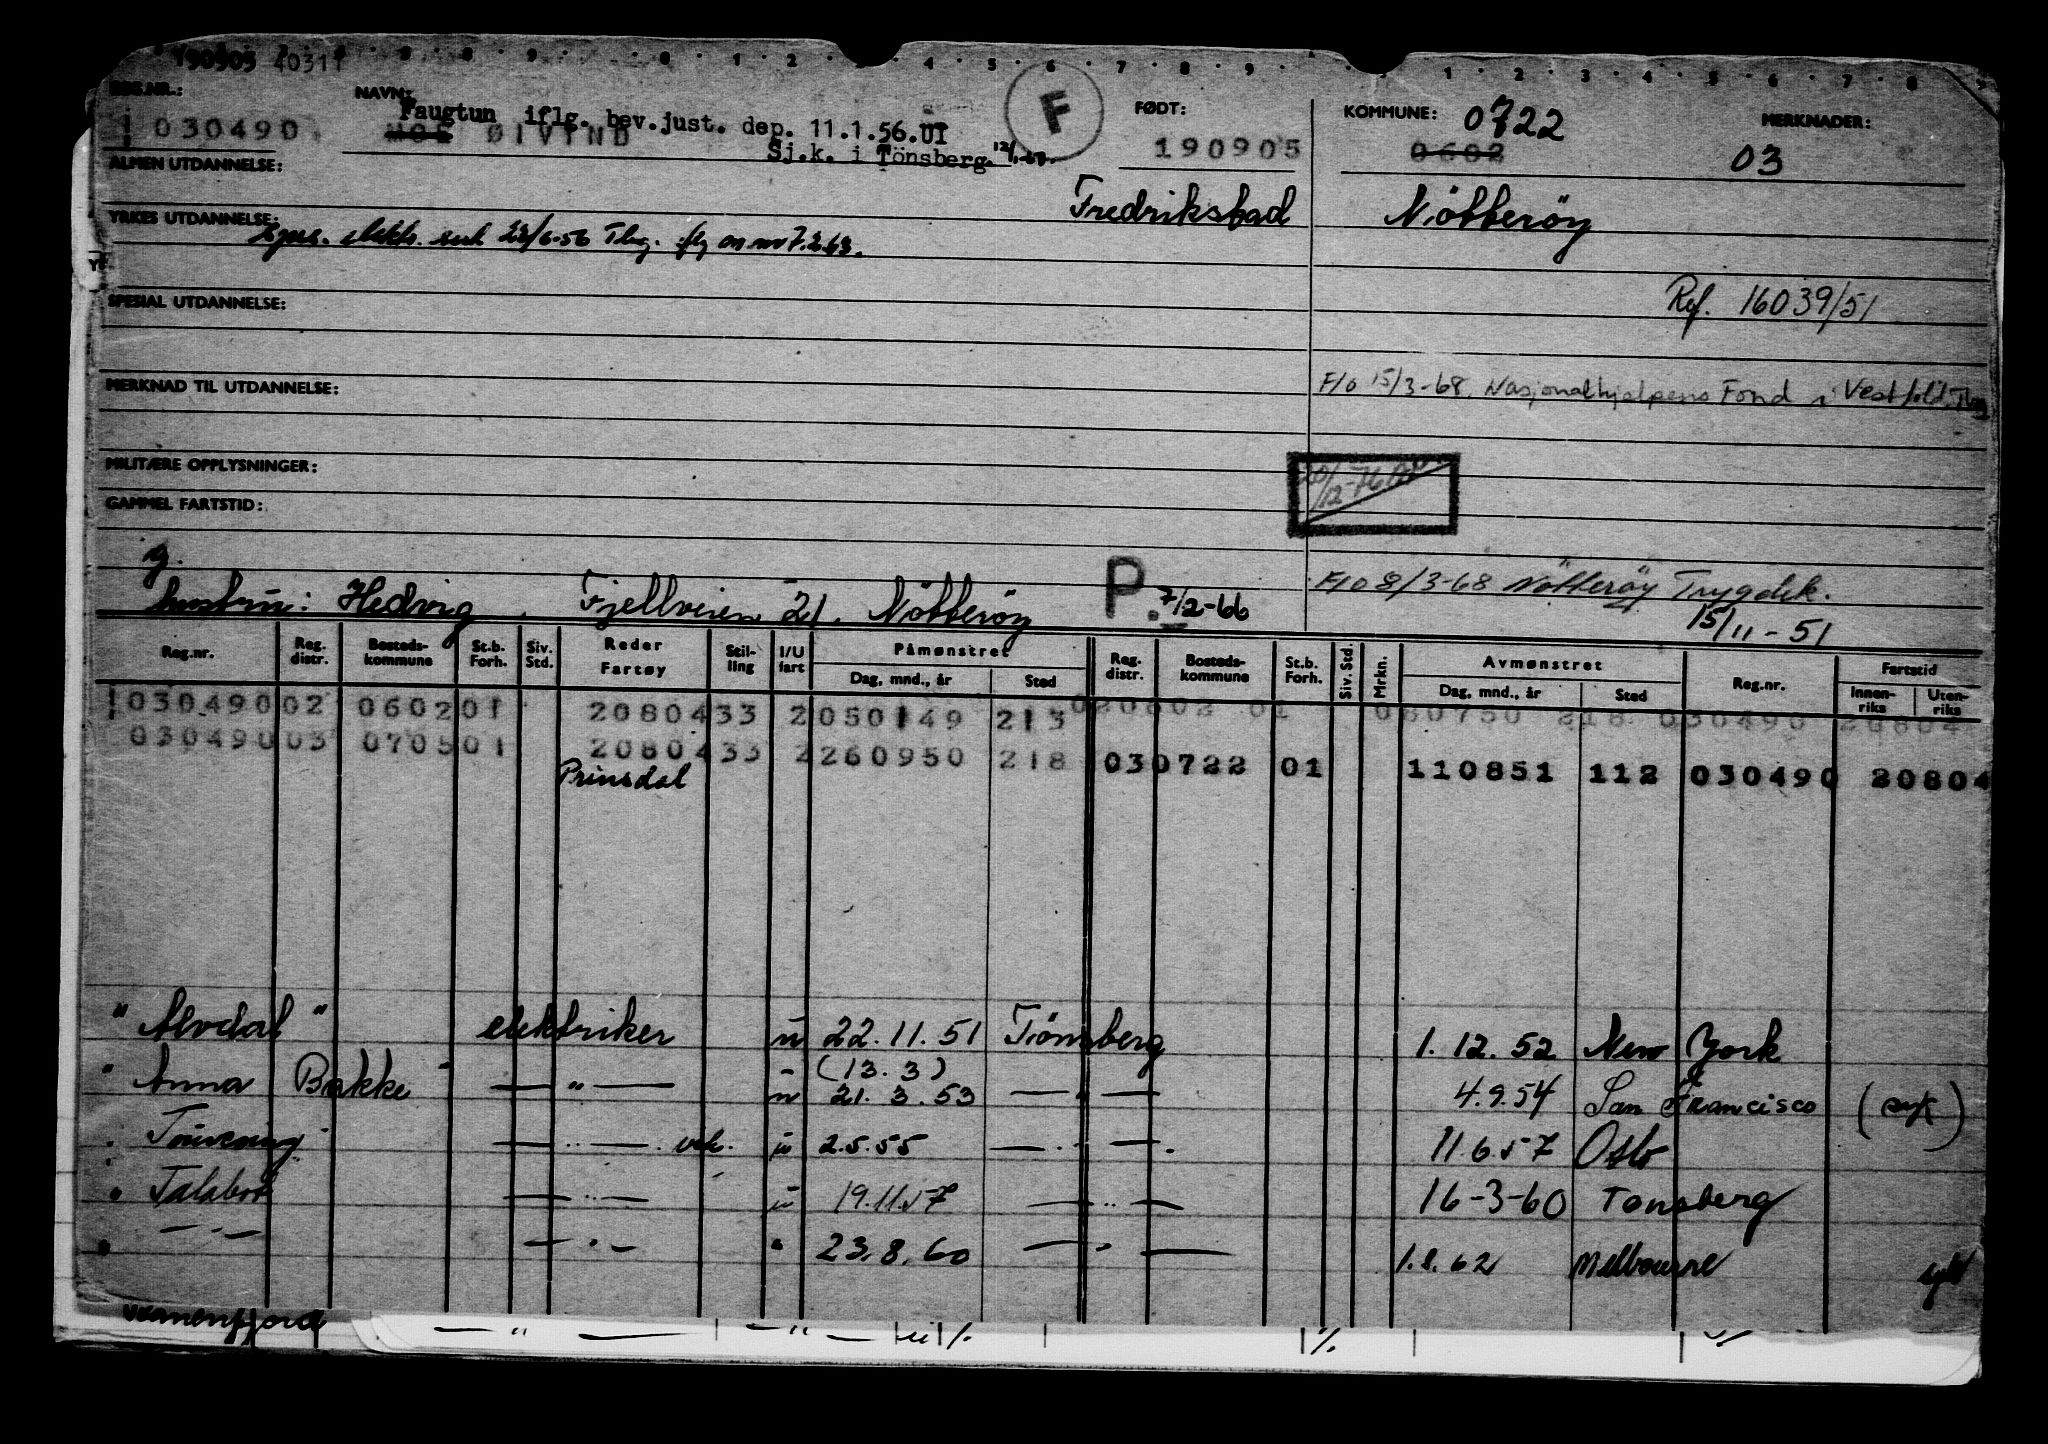 190905 40311
REG.NR.: NAVN: FØDT: KOMMUNE: 0722 MERKNADER:
Faugtun iflg. bev.just. dep. 11.1.56.UI F
030490 MOE ØIVIND 190905 0602 03
Sj.k. i Tönsberg.
ALMEN UTDANNELSE:
Fredrikstad Nötteröy
YRKES UTDANNELSE:
23/6-56 Tbg. 7.2.63.
SPESIAL UTDANNELSE: Ref. 16039/51
MERKNAD TIL UTDANNELSE: F/o 15/3-68. Nasjonalhjelpens Fond i Vestfold, Tbg
MILITÆRE OPPLYSNINGER:
20/12-76
GAMMEL FARTSTID:
g.
hustru: Hedvig, Fjellveien 21. Nötteröy P. 7/2-66 F/o 8/3-68 Nötteröy Trygdek.
15/11-51
Reg.nr. Reg. distr. Bosteds-kommune St.b. Forh. Siv. Std. Reder Fartøy Stil-ling I/U fart Påmønstret Dag, mnd., år Sted Reg. distr. Bosteds-kommune St.b. Forh. Siv. Std. Mrkn. Avmønstret Dag, mnd., år Sted Reg.nr. Fartstid Innen-riks Uten-riks
030490 02 0602 01 20804 33 2 050149 213 020602 01 080750 218 030490 20804
030490 03 0705 01 20804 33 2 260950 218 030722 01 110851 112 030490 20804
Prinsdal
" Alvdal " elektriker u 22.11.51 Tönsberg 1.12.52 New York
(13.3)
" Anna Bakke " — " — u 21.3.53 — " — 4.9.54 San Francisco (syk)
— " — u 2.5.55 — " — 11.6.57 Oslo
" Talabot — " — u 19.11.57 — " — 16-3-60 Tønsberg
" — " — — " — " 23.8.60 — " — 1.8.62 Melbourne syk
— " — — " —